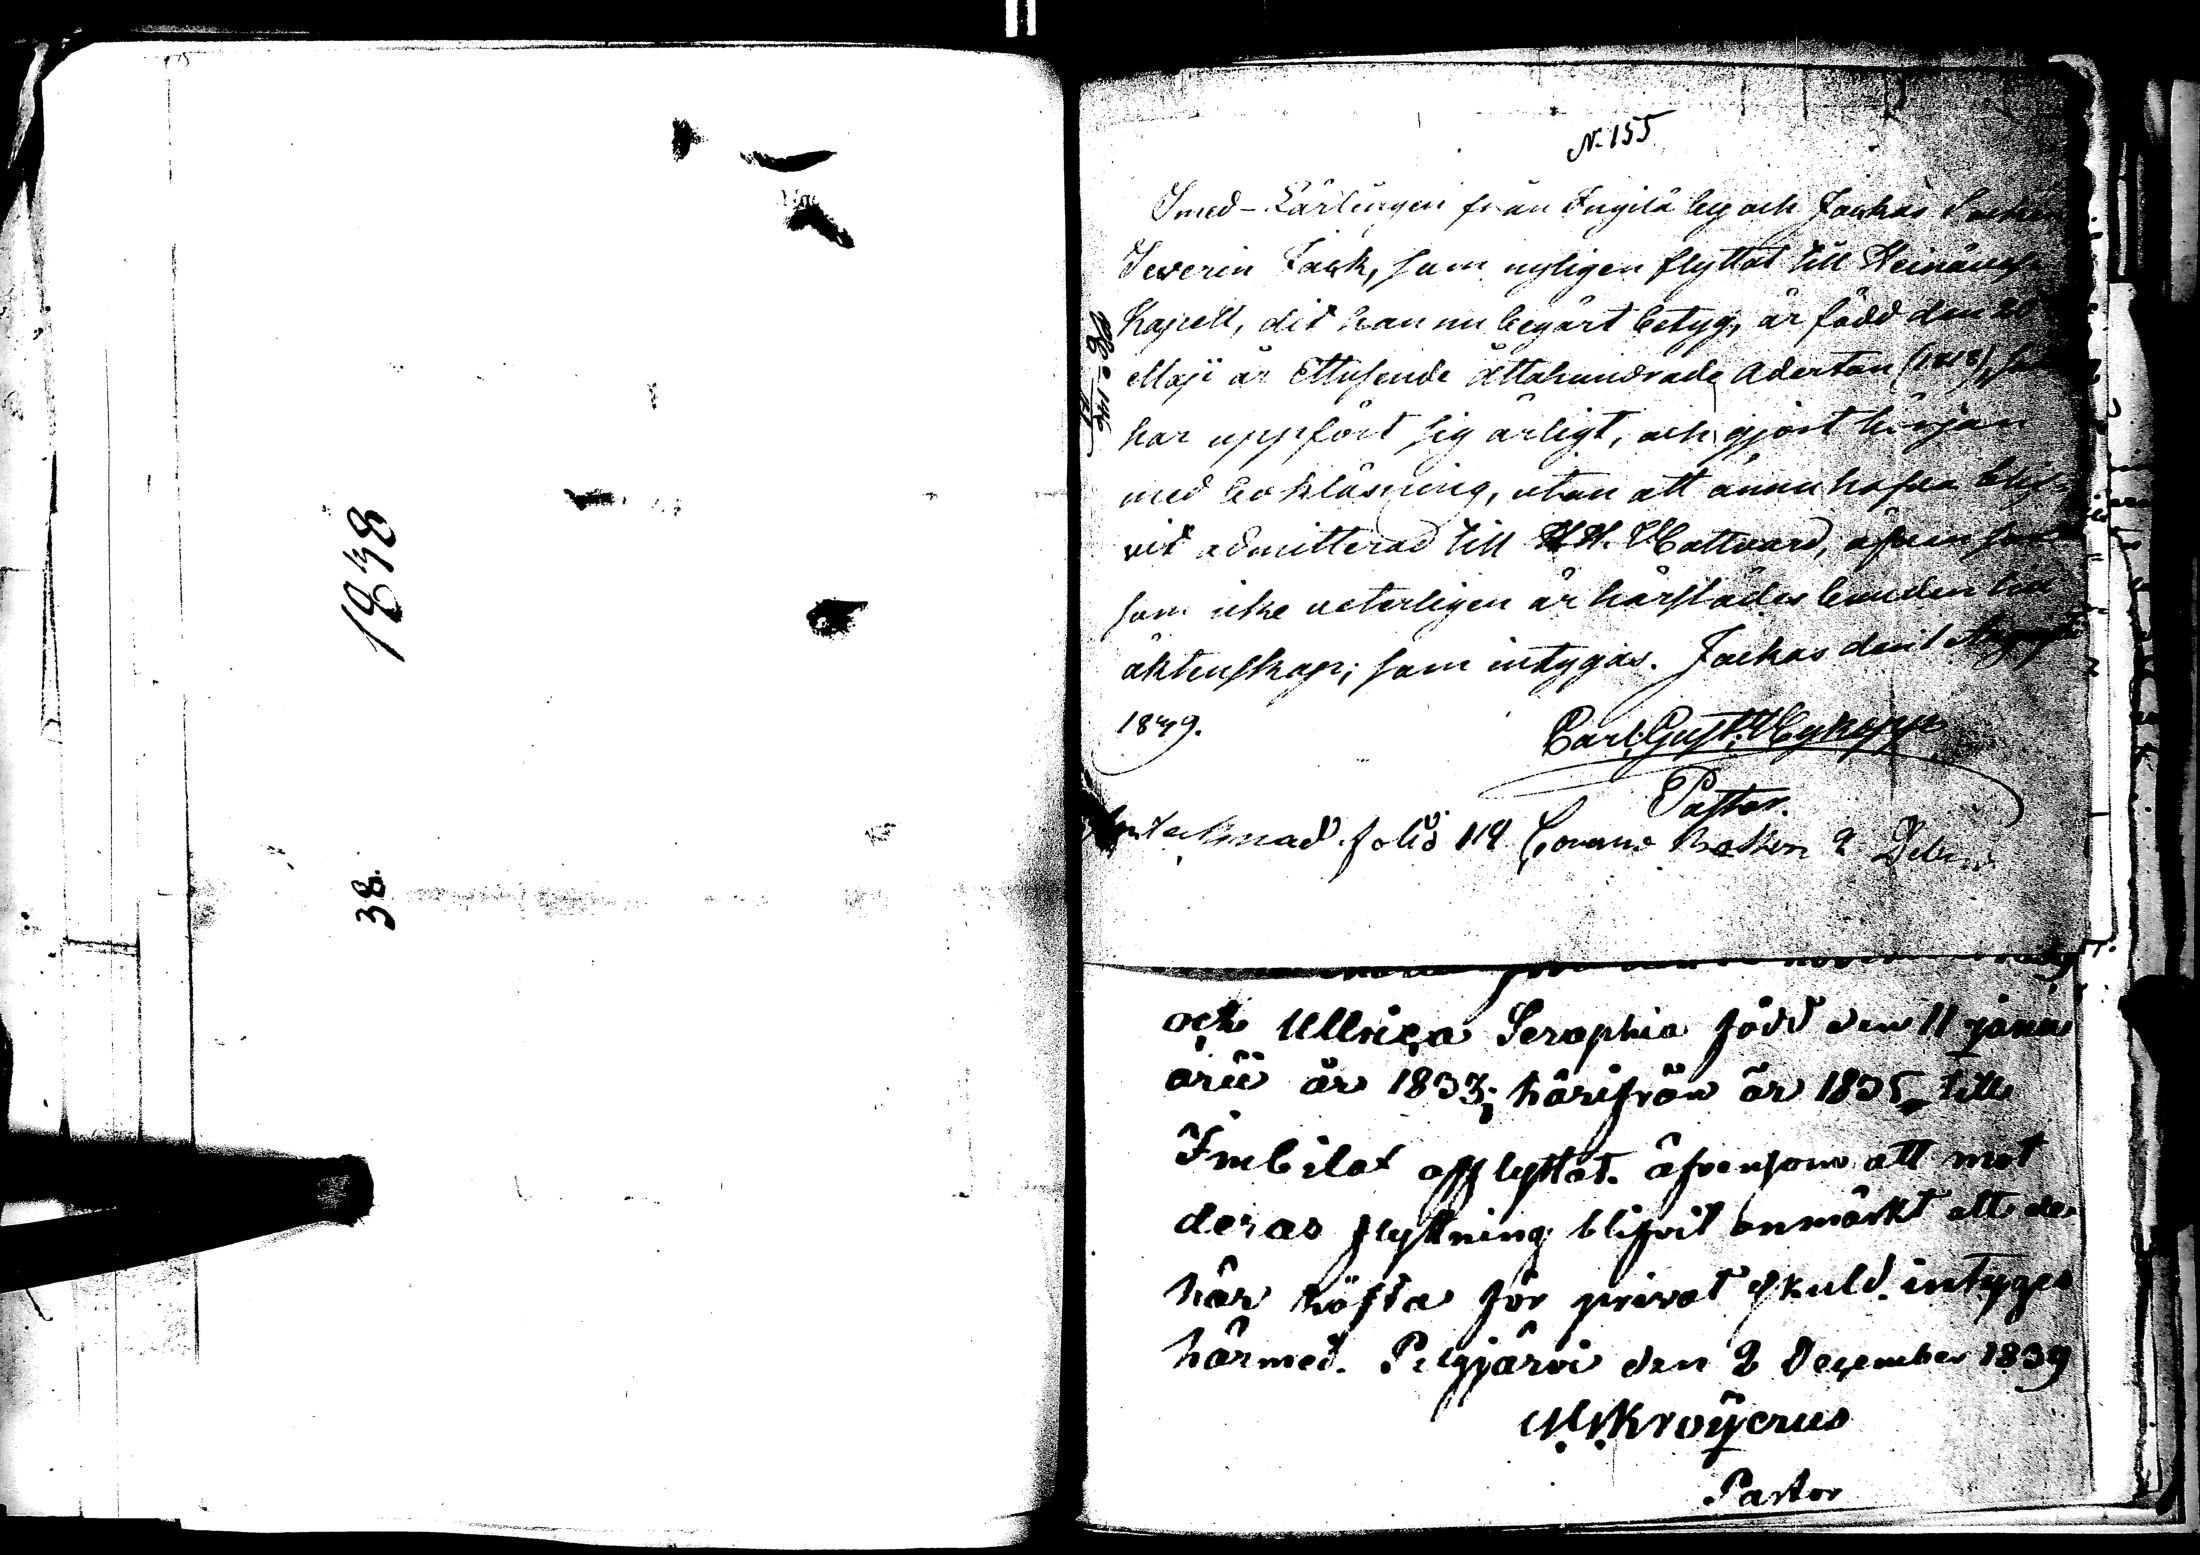 1838
38.
N. 155
Smed-Lärlingen från Ingilä by och Jackas Socken
Severin Fack, som nyligen flyttat till Heinävesi
Kapell, dit han nu begärt betyg, är född den 20
Maji år Ettusende Ottahundrade Aderton (1818),
har uppfört sig ärligt, och gjort början
med bokläsning, utan att ännu hafva blif-
vit admitterad till H. H. Nattvard, äfven
som icke veterligen är härstädes bunden till
äktenskap; som intygas. Jackas den 1 Augusti
1839.
Carl Gust. Nykopp
Pastor.
Antecknad folio 119 Comm Boken 2 Delen
och Ullrica Seraphia född den 11 janu
arii år 1833; härifrån år 1835 till
Imbilax afflyttat. äfvensom att mot
deras flyttning blifvit anmärkt att de
här häfta för privat skuld. intygas
härmed. Pelgjärvi den 2 December 1839
M. Kroÿerus
Pastor